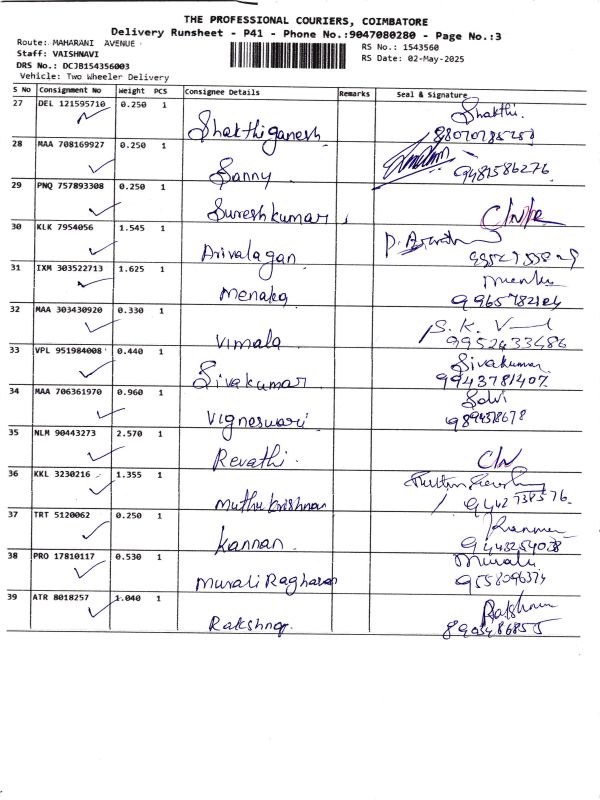 THE PROFESSIONAL COURIERS, COIMBATORE
Delivery Runsheet - P41 - Phone No.:9047080280 - Page No.:3
Route: MAHARANI AVENUE
Staff: VAISHNAVI
DRS No.: DCJB154356003
Vehicle: Two Wheeler Delivery
RS No.: 1543560
RS Date: 02-May-2025
S No Consignment No Weight PCS Consignee Details Remarks Seal & Signature
27 DEL 121595710 0.250 1 Shakthiganesh Shakthi.
28 MAA 708169927 0.250 1 Sanny 9481586276
29 PNQ 757893308 0.250 1 Sureshkumar
30 KLK 7954056 1.545 1 Arivalagan
31 IXM 303522713 1.625 1 Menaka
32 MAA 303430920 0.330 1 Vimala S.K.
9952433486
33 VPL 951984008 0.440 1 Sivakumar Sivakumar
9943781407
34 MAA 706361970 0.960 1 Vigneswari Selvi
35 NLM 90443273 2.570 1 Revathi. C/N
36 KKL 3230216 1.355 1 Muthukrishnan
9442738576.
37 TRT 5120062 0.250 1 Kannan.
38 PRO 17810117 0.530 1 Murali Raghavan Murali
39 ATR 8018257 1.040 1